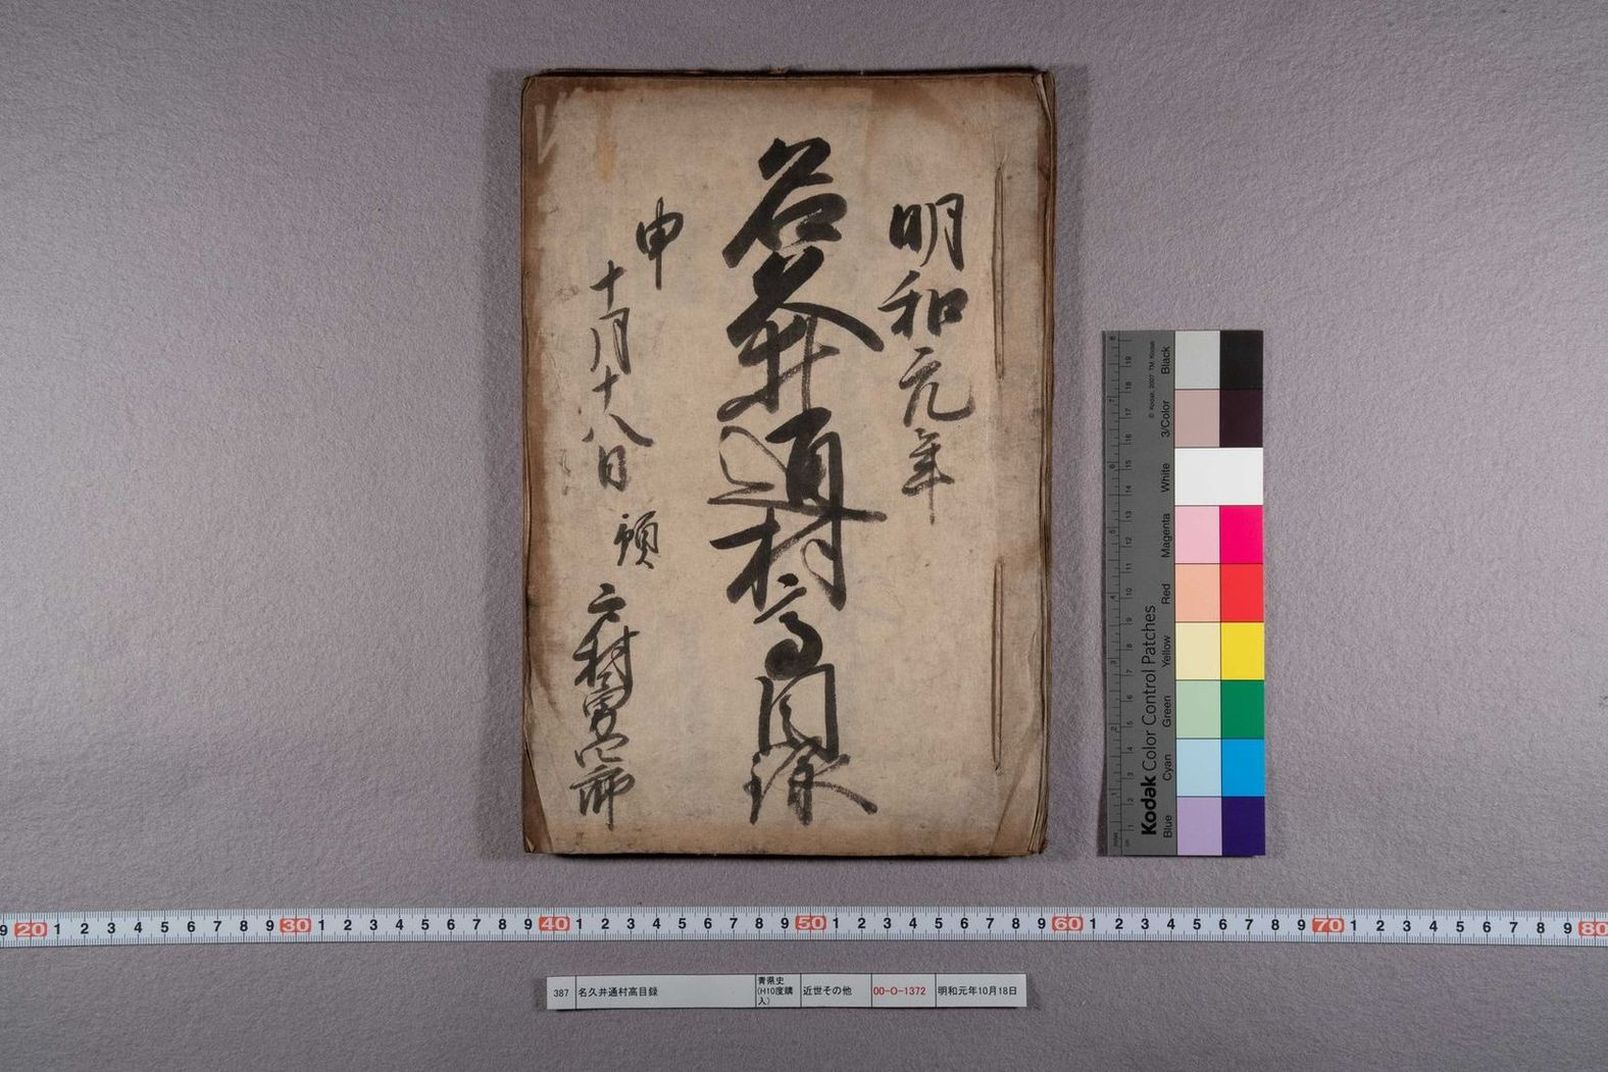 明和元年
名久井通村高目録
申
十月十八日
村
Kodak Color Control Patches
© Kodak, 2007 TM: Kodak
Blue Cyan Green Yellow Red Magenta White 3/Color Black
9 20 1 2 3 4 5 6 7 8 9 30 1 2 3 4 5 6 7 8 9 40 1 2 3 4 5 6 7 8 9 50 1 2 3 4 5 6 7 8 9 60 1 2 3 4 5 6 7 8 9 70 1 2 3 4 5 6 7 8 9 80
387 名久井通村高目録 青県史(H10度購入) 近世その他 00-O-1372 明和元年10月18日